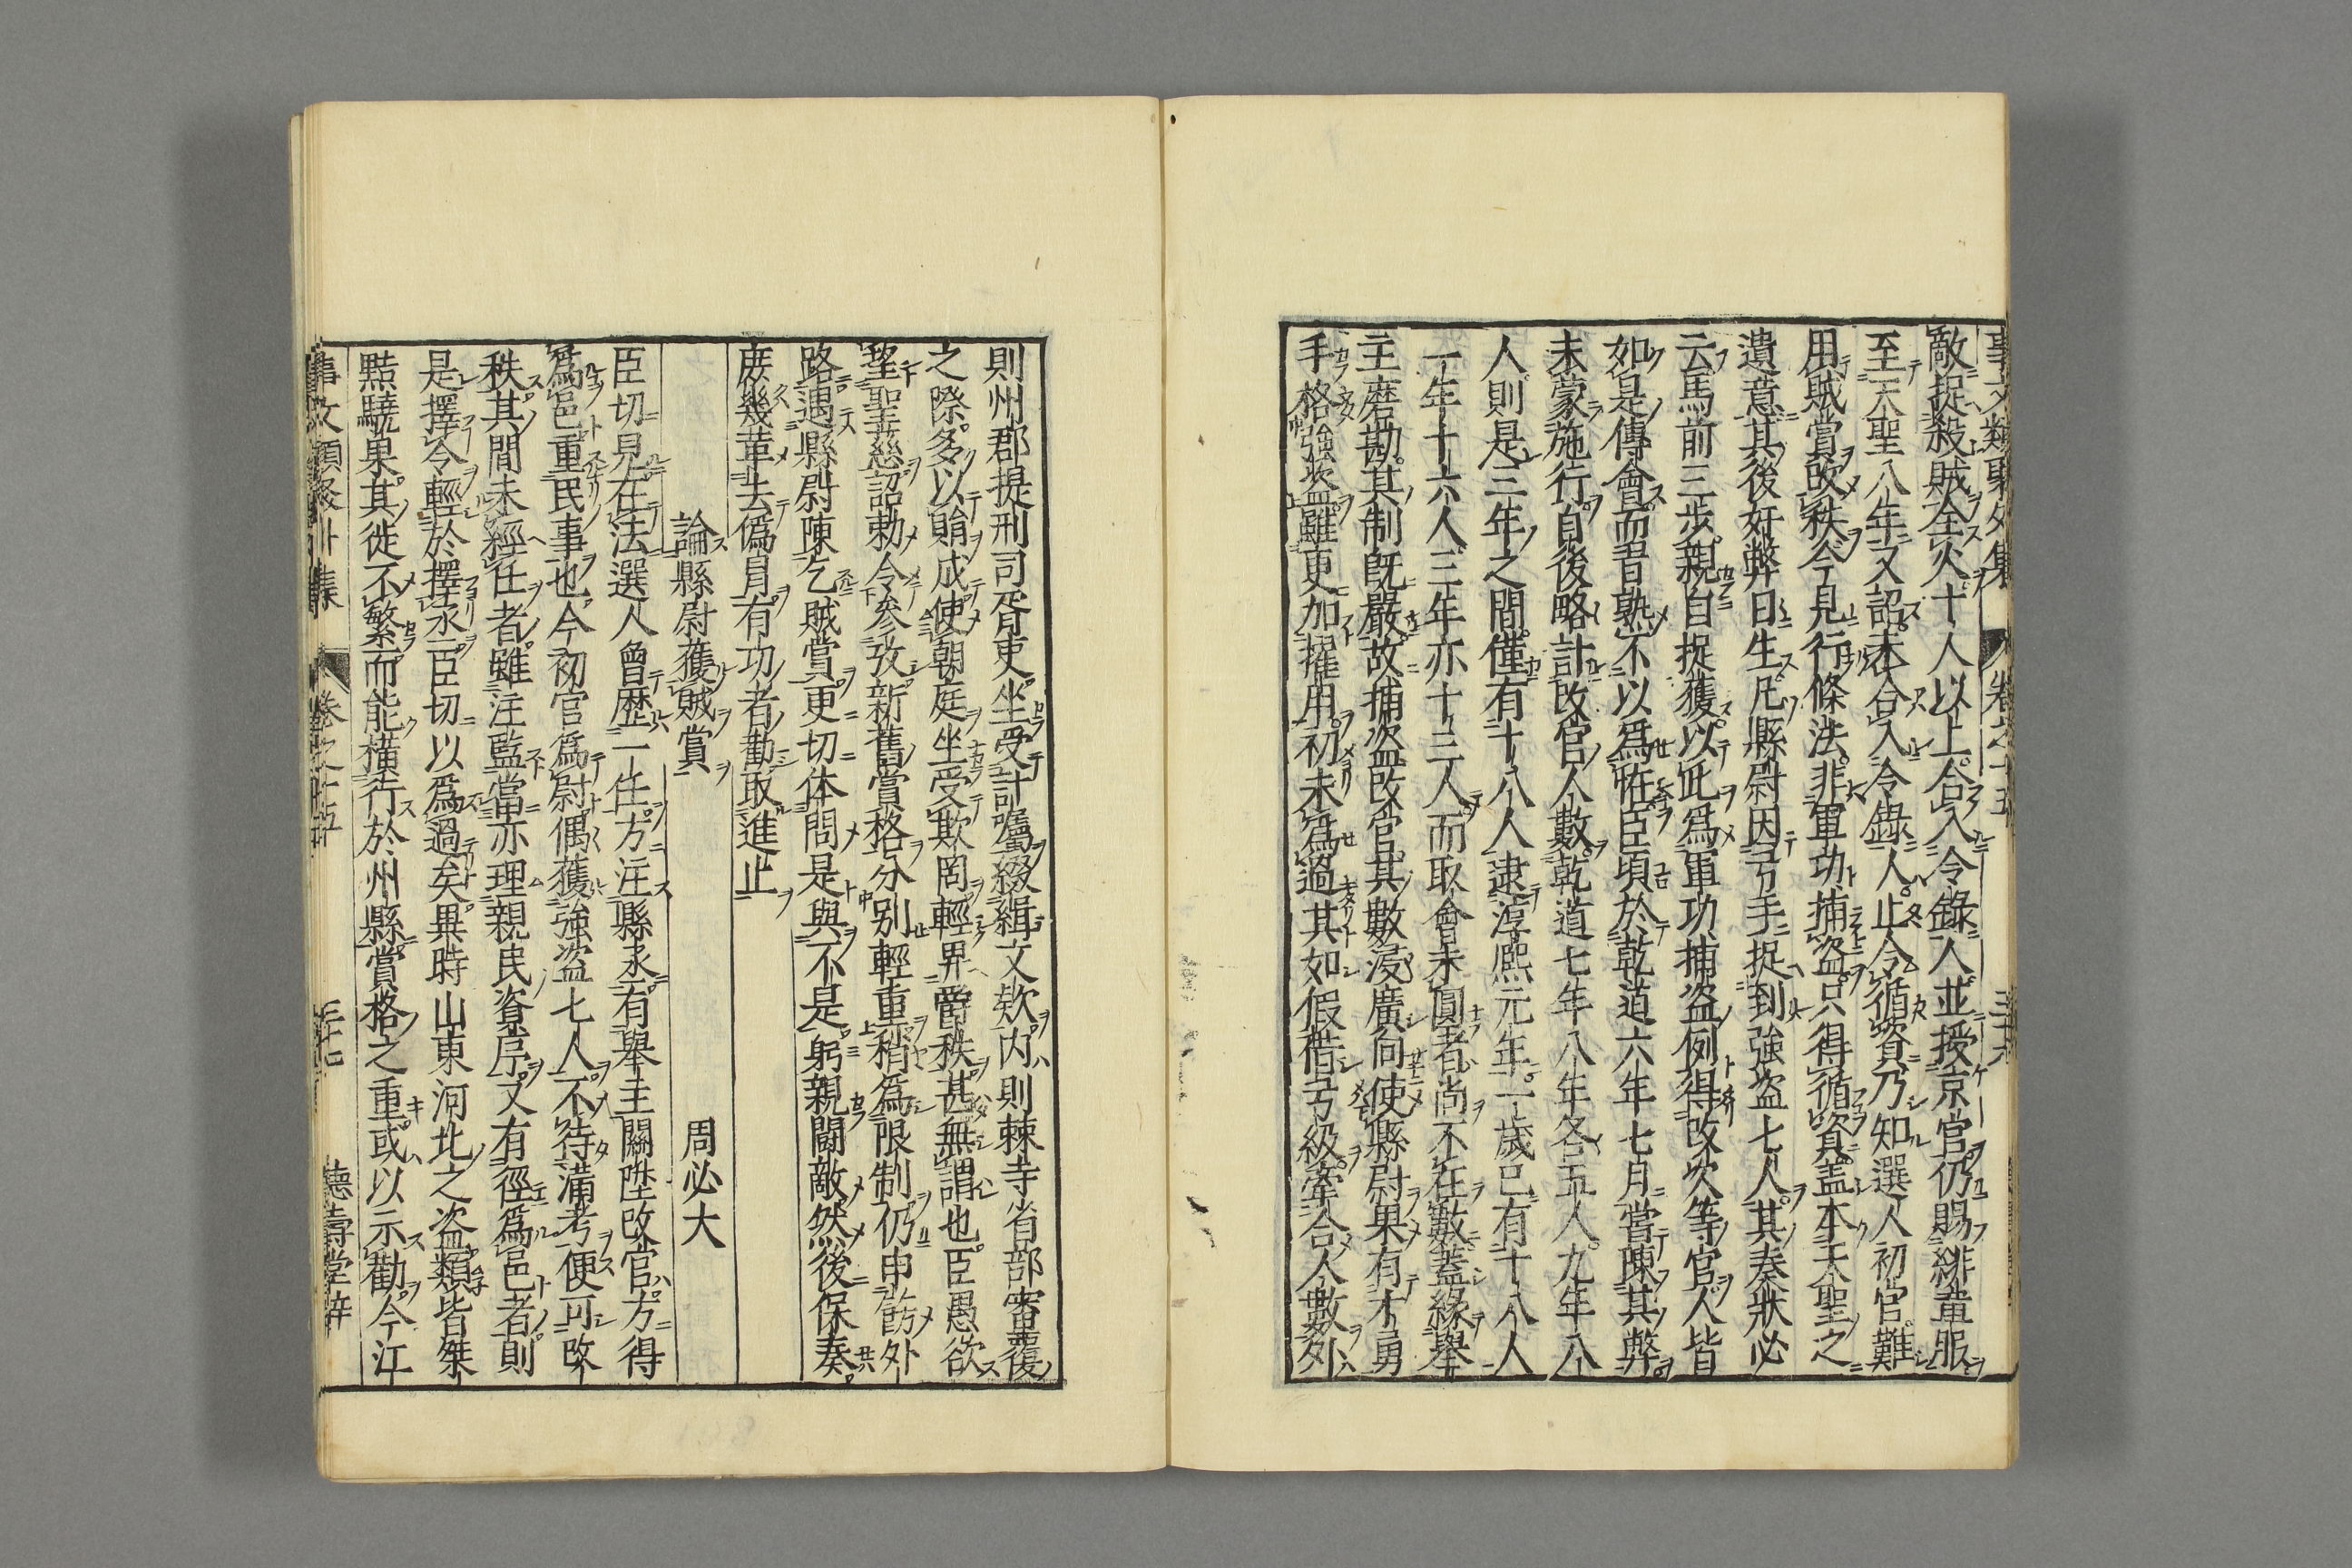 敵捉殺賊全火十人以上合入令錄人並授京官仍賜緋章服
至天聖八年又詔未合入令錄人止令循資乃知選人初官難
用賊賞改秩今見行條法非軍功捕盗只得循資盖本天聖之
遺意其後奸弊日生凡縣尉因弓手捉到強盗七人其奏狀必
云馬前三步親自捉獲以此爲軍功捕盗例得改次等官人皆
如是傳會而吾熟不以爲恠臣頃於乾道六年七月當陳其弊
未蒙施行自後略計改官人數乾道七年八年各五人九年八
人則是三年之間僅有十八人逮淳熙元年一歲已有十八人
一年十六人三年亦十三人而取會未圓者尚不在數蓋緣舉
主磨勘其制既嚴故捕盗改官其數浸廣向使縣尉果有才勇
手格強盗雖更加擢用初未爲過其如假借弓級牽合人數外
則州郡提刑司胥吏坐受計囑綴緝文欵内則棘寺省部審覆
之際多以賄成使朝庭坐受欺罔輕畀爵秩甚無謂也臣愚欲
望聖慈詔勅令參攷新舊賞格分别輕重稍爲限制仍申飭外
路遇縣尉陳乞賊賞更切体問是與不是躬親鬬敵然後保奏
庶幾革去僞冒有功者勸取進止
論縣尉獲賊賞 周必大
臣切見在法選人曾歷一任方注縣丞有舉主關陞改官方得
爲邑重民事也今初官爲尉偶獲強盗七人不待滿考便可改
秩其間未經任者雖注監當亦理親民資序又有徑爲邑者則
是擇令輕於擇丞臣切以爲過矣異時山東河北之盗類皆桀
黠驍果其徙不繁而能橫行於州縣賞格之重或以示勸今江
事文類聚外集 卷之十五 三十七 德壽堂梓